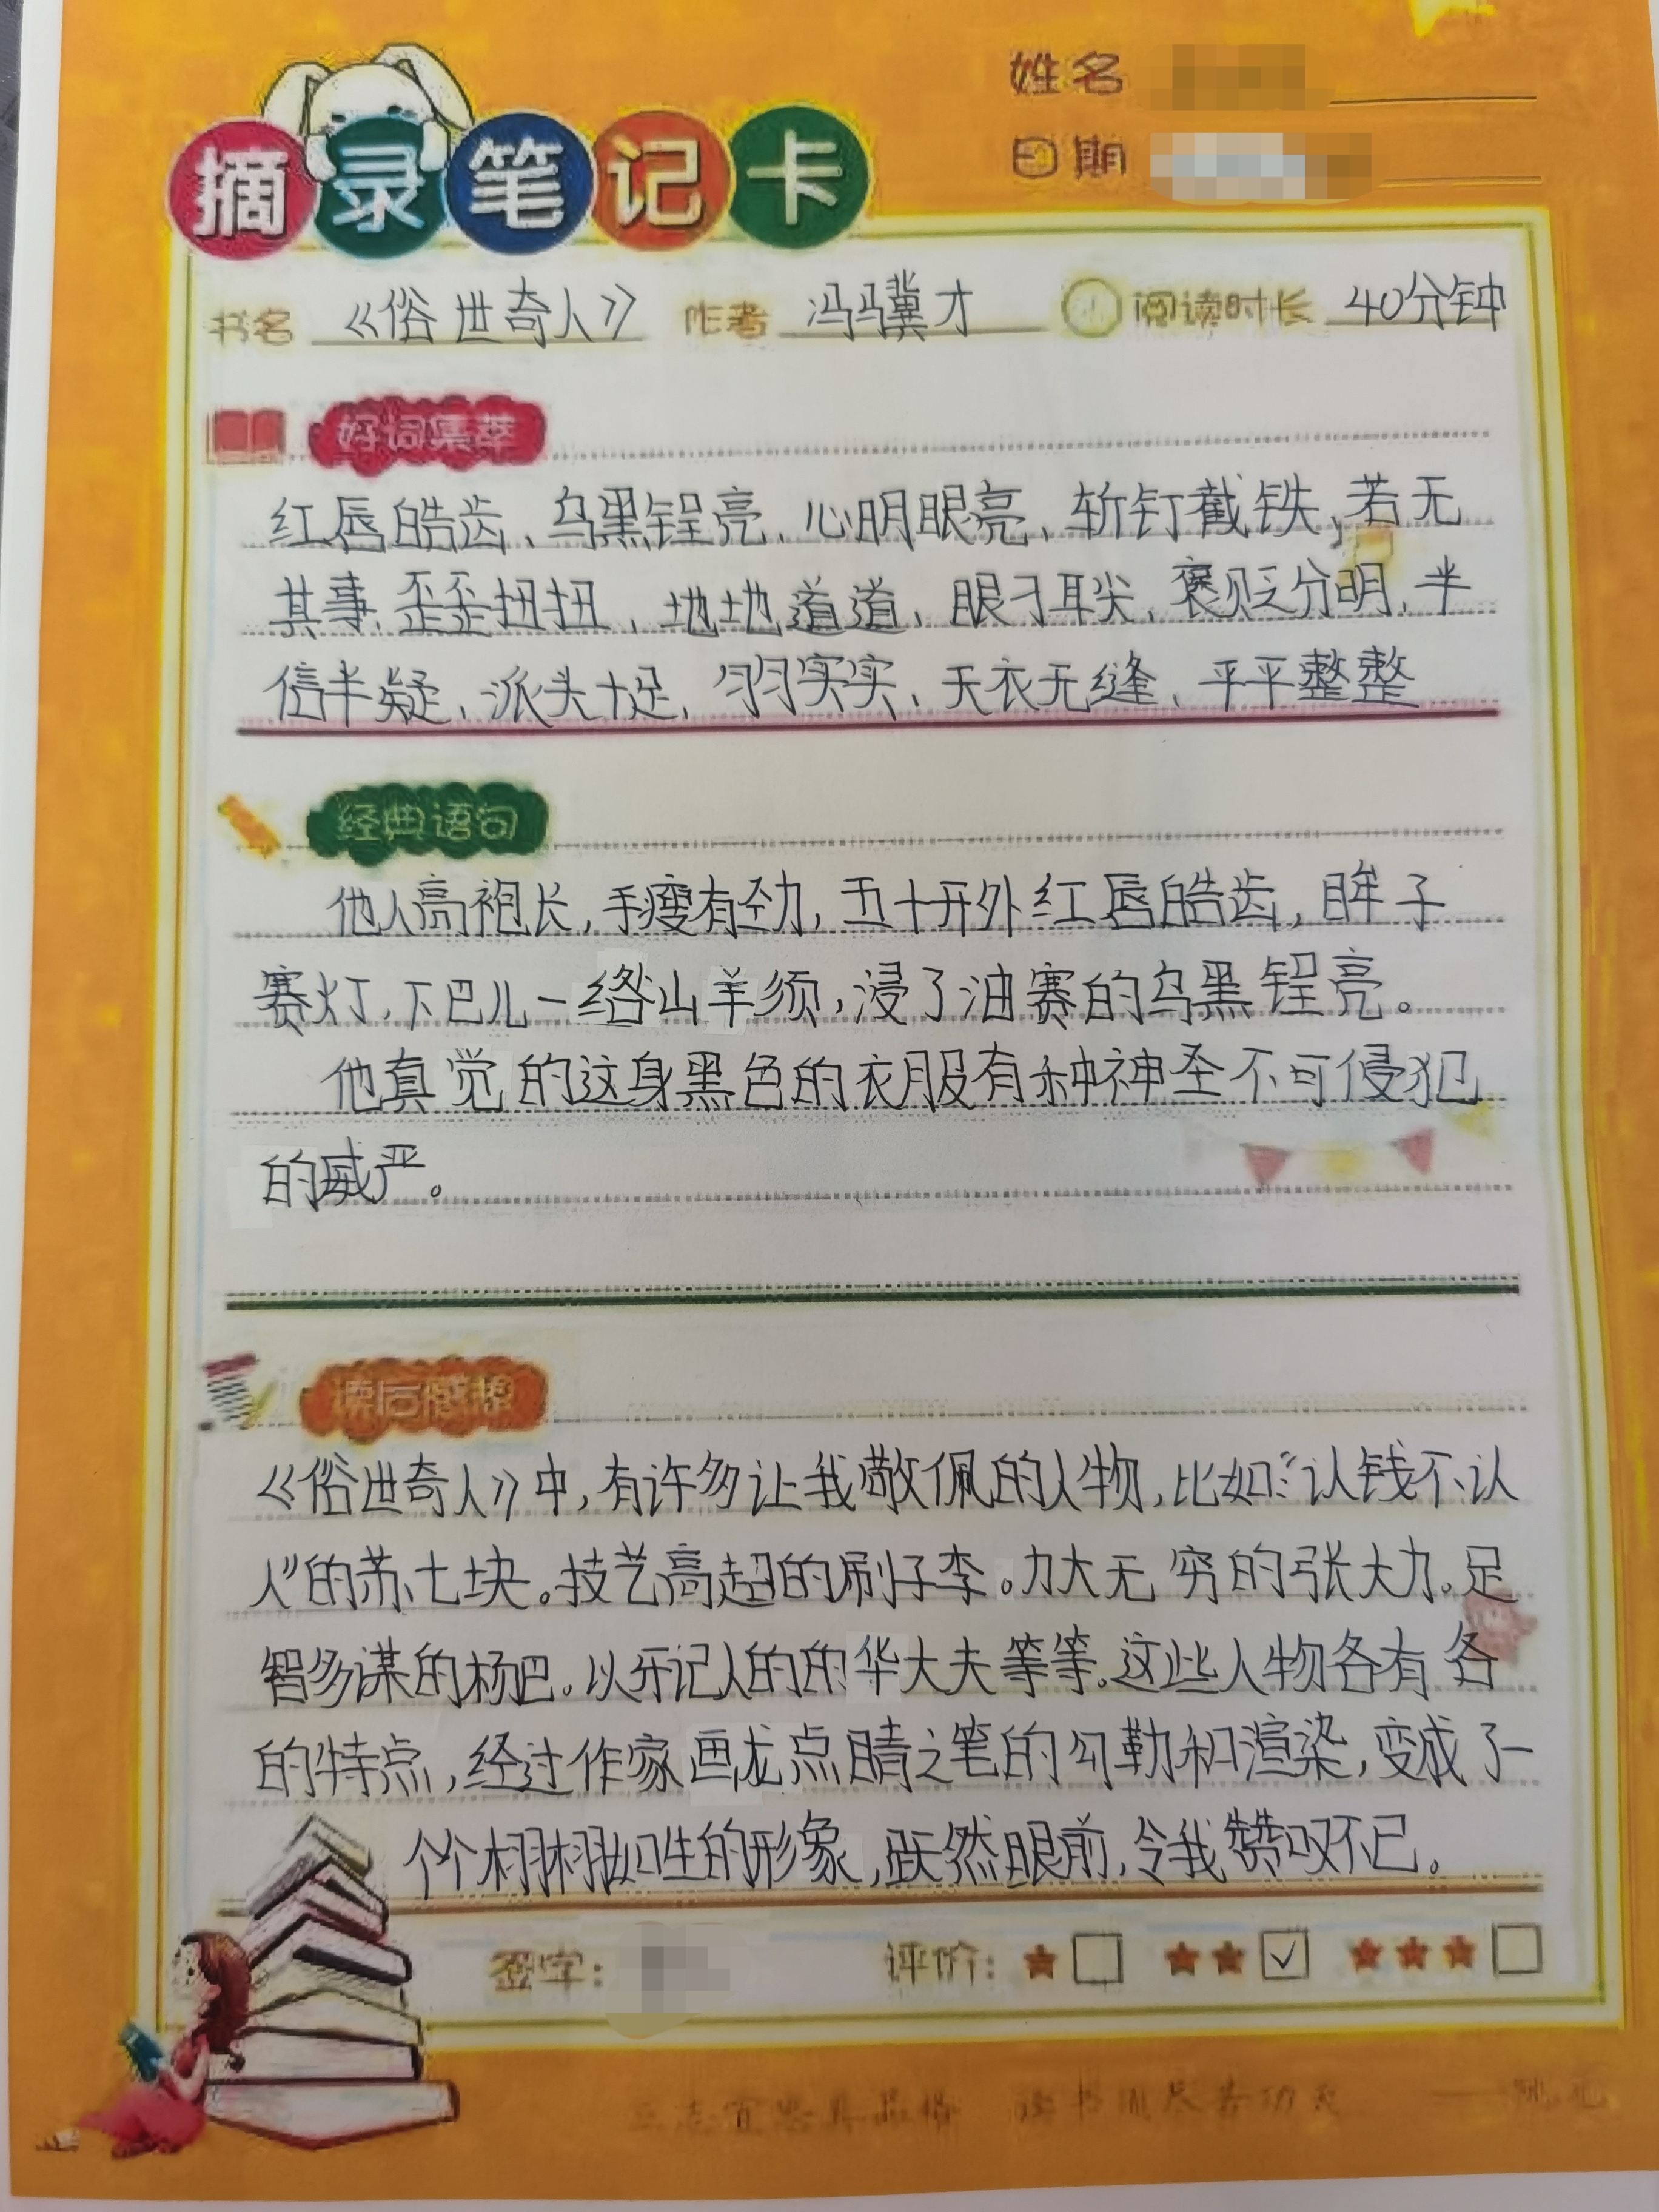 姓名
日期
摘录笔记卡
书名 《俗世奇人》 作者 冯骥才 阅读时长 40分钟
好词集萃
红唇皓齿、乌黑锃亮、心明眼亮、斩钉截铁、若无
其事、歪歪扭扭、地地道道、眼刁耳尖、褒贬分明、半
信半疑、派头十足、羽羽实实、天衣无缝、平平整整
经典语句
他人高袍长,手瘦有劲,五十开外红唇皓齿,眸子
赛灯,下巴儿一绺山羊须,浸了油赛的乌黑锃亮。
他真觉的这身黑色的衣服有种神圣不可侵犯
的威严。
读后感想
《俗世奇人》中,有许多让我敬佩的人物,比如:“认钱不认
人”的苏七块。技艺高超的刷子李。力大无穷的张大力。足
智多谋的杨巴。以牙记人的的华大夫等等。这些人物各有各
的特点,经过作家画龙点睛之笔的勾勒和渲染,变成了一
个个栩栩如生的形象,跃然眼前,令我赞叹不已。
签字: 评价: ★ □ ★★ ☑ ★★★ □
立志宜思真品格 读书须尽苦功夫